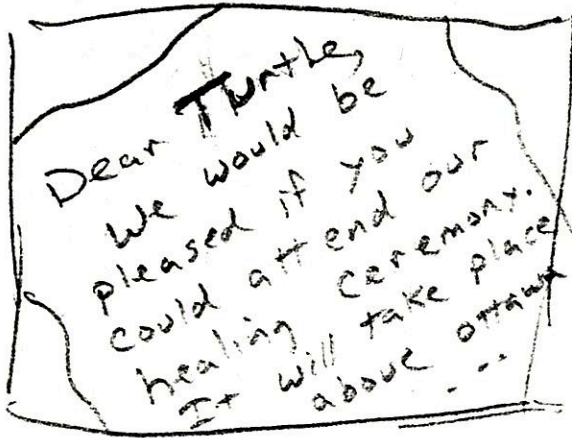 Dear Turtle,
We would be
pleased if you
could attend our
healing ceremony.
It will take place
above ottawa
...